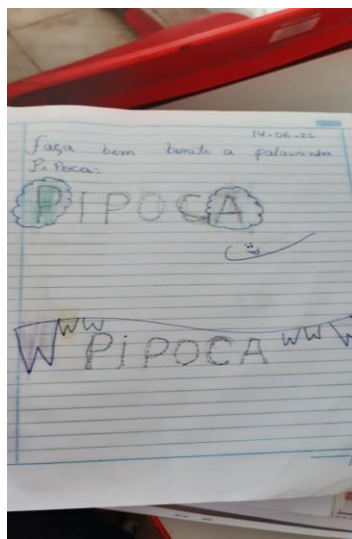 14-06-22
faça bem bonito a palavrinha
Pipoca:
PIPOCA
W W W PiPOCA W W W